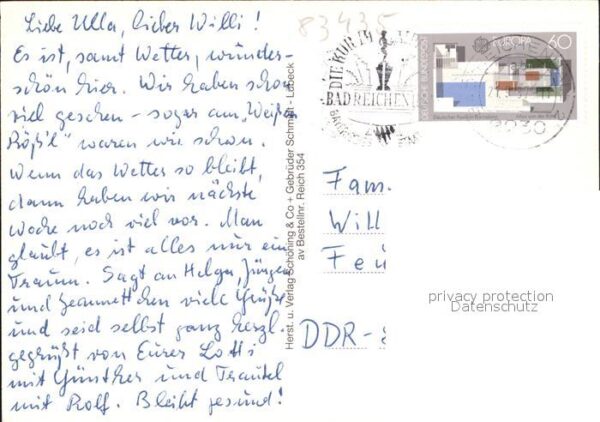 Liebe Ulla, lieber Willi!
Es ist, samt Wetter, wunder-
schön hier. Wir haben schon
viel gesehen - sogar am "Weißen
Rößl" waren wir schon.
Wenn das Wetter so bleibt,
dann haben wir nächste
Woche noch viel vor. Man
glaubt, es ist alles nur ein
Traum. Sagt an Helga, Jürgen
und Jeannettchen viele Grüße
und seid selbst ganz herzl.
gegrüßt von Eurer Lotti
mit Günther und Trautel
mit Rolf. Bleibt gesund!
83435
DIE KUR IM
BAD REICHEN
DEUTSCHE BUNDESPOST
EUROPA 60
Herst. u. Verlag Schöning & Co + Gebrüder Schmidt - Lübeck
av Bestellnr. Reich 354
Fam.
Will
Feu
DDR -
privacy protection
Datenschutz